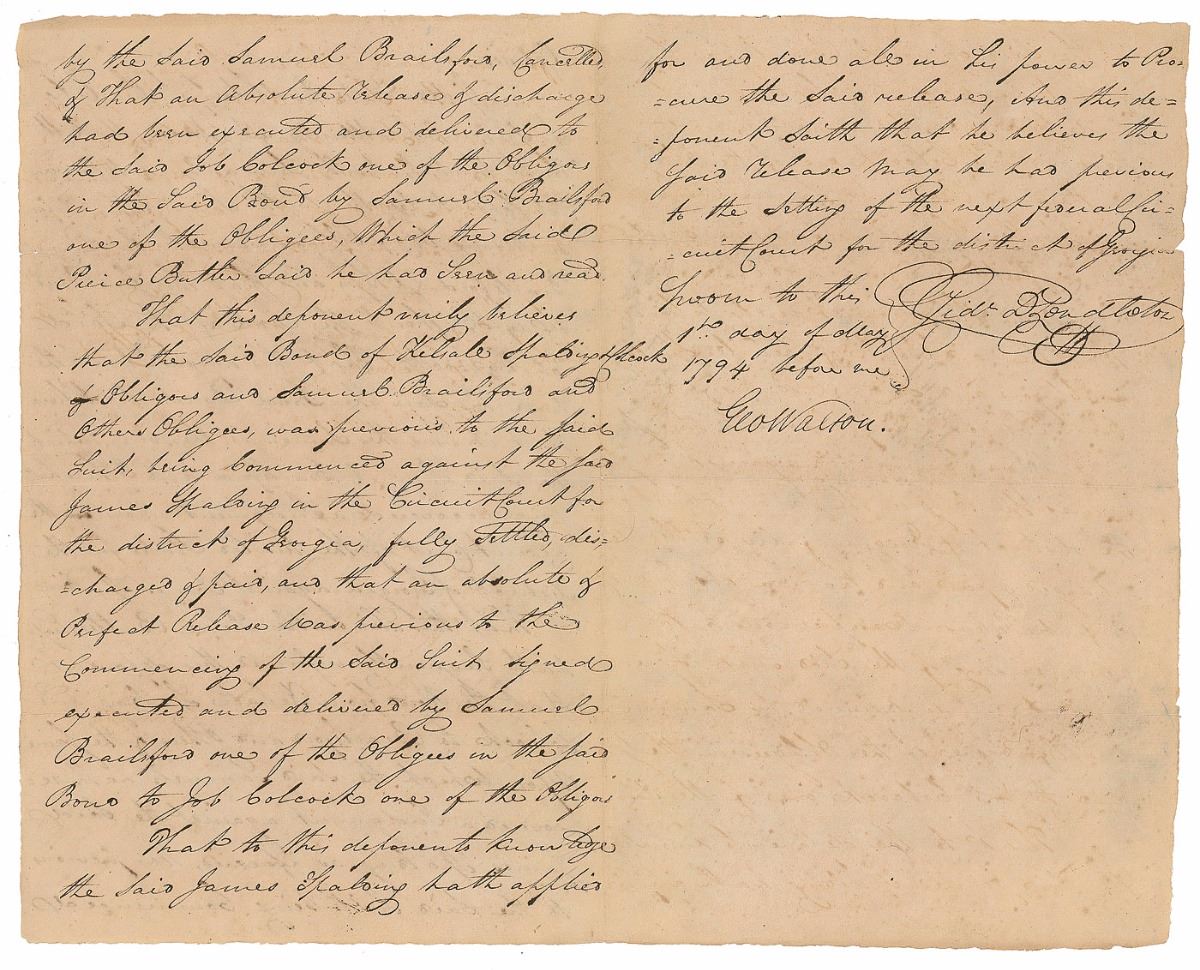 by the Said Samuel Brailsford, Cancelled,
& That an Absolute Release & discharge
had been executed and delivered to
the Said Job Colcock one of the Obligors
in the Said Bond by Samuel Brailsford
one of the Obligees, Which the Said
Peirce Butler Said he had Seen and read
That this deponent verily believes
that the Said Bond of Kelsale Spalding & Colcock
& Obligors and Samuel Brailsford and
Others Obligees, was previous to the Said
Suit, being Commenced against the Said
James Spalding in the Circuit Court for
the district of Georgia, fully Settled, dis=
=charged & paid, and that an absolute &
Perfect Release was previous to the
Commencing of the Said Suit Signed
executed and delivered by Samuel
Brailsford one of the Obligees in the Said
Bond to Job Colcock one of the Obligors
That to this deponents knowledge
the Said James Spalding hath applied
for and done all in his power to Pro=
=cure the Said release, And this de=
=ponent Saith that he believes the
Said Release may be had previous
to the Setting of the next federal Cir=
=cuit Court for the district of Georgia
Sworn to this
1st day of May
1794 before me
Geo Walton.
Pendleton